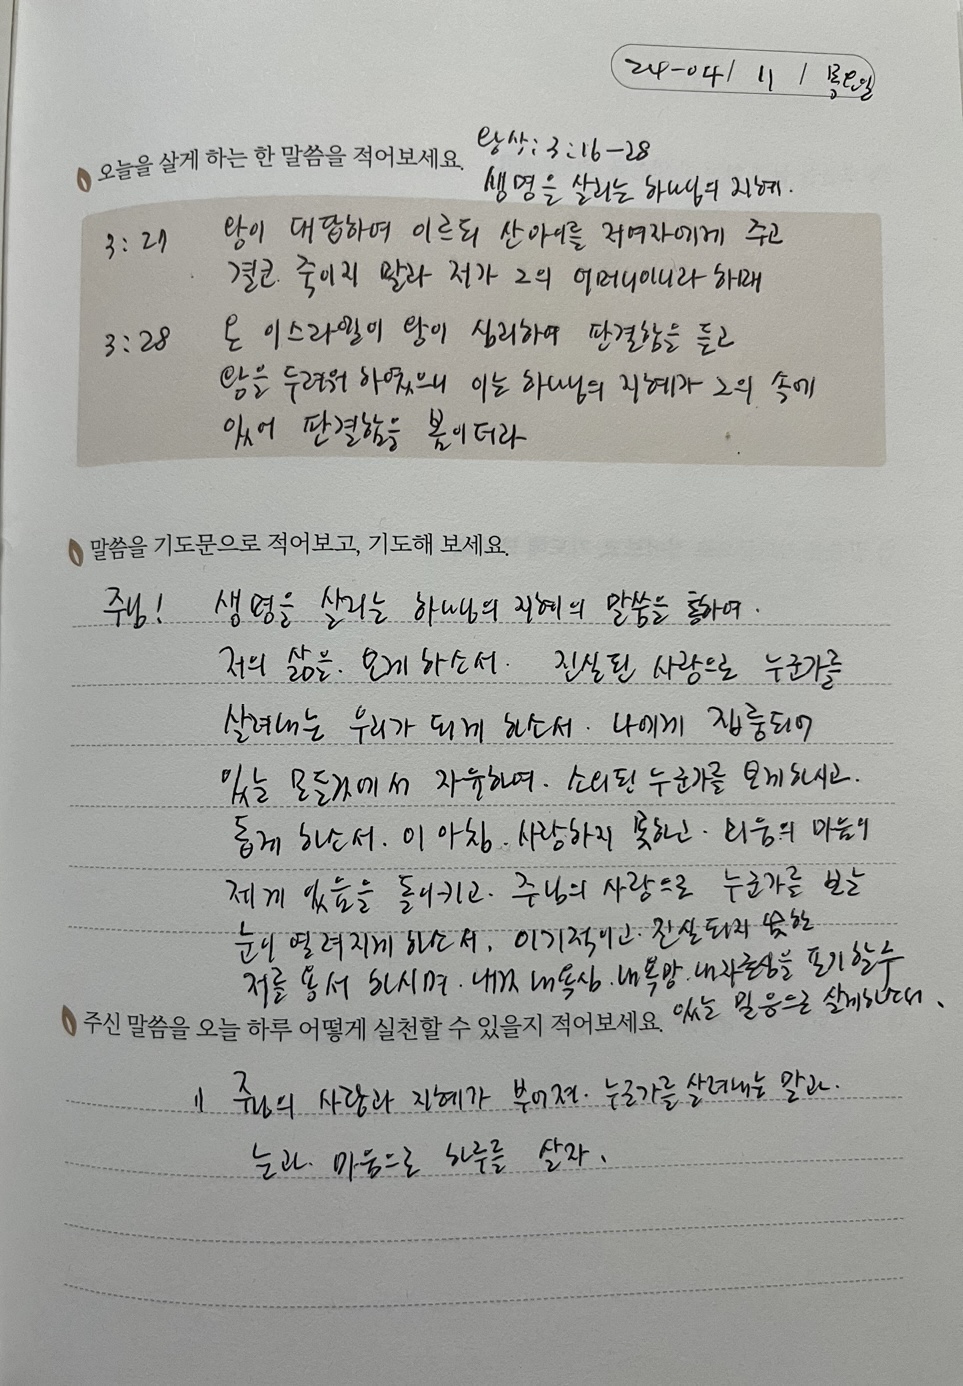 24-04/ 11 / 목요일
오늘을 살게 하는 한 말씀을 적어보세요.
왕상: 3:16-28
생명을 살리는 하나님의 지혜.
3:27 왕이 대답하여 이르되 산아이를 저여자에게 주고
결코 죽이지 말라 저가 그의 어머니이니라 하매
3:28 온 이스라엘이 왕이 심리하여 판결함을 듣고
왕을 두려워 하였으니 이는 하나님의 지혜가 그의 속에
있어 판결함을 봄이더라
말씀을 기도문으로 적어보고, 기도해 보세요.
주님! 생명을 살리는 하나님의 지혜의 말씀을 통하여.
저의 삶을. 보게 하소서. 진실된 사랑으로 누군가를
살려내는 우리가 되게 하소서. 나에게 집중되어
있는 모든것에서 자유하여. 소외된 누군가를 보게하시고.
돕게 하소서. 이 아침. 사랑하지 못하고. 미움의 마음이
제게 있음을 돌이키고. 주님의 사랑으로 누군가를 보는
눈이 열려지게 하소서. 이기적이고. 진실되지 못한
저를 용서 하시며. 내것 내욕심. 내욕망. 내자존심을 포기할수
있는 믿음으로 살게하소서.
주신 말씀을 오늘 하루 어떻게 실천할 수 있을지 적어보세요.
1) 주님의 사랑과 지혜가 부어져. 누군가를 살려내는 말과.
눈과. 마음으로 하루를 살자.